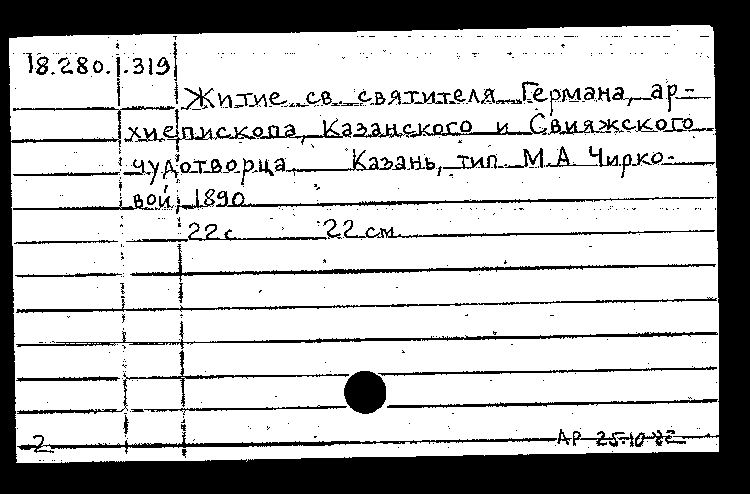 18.280.1.319
Житие св. святителя Германа, ар-
хиепископа, Казанского и Свияжского
чудотворца. Казань, тип. М.А. Чирко-
вой, 1890
22 с. 22 см.
2 АР 25.10.82